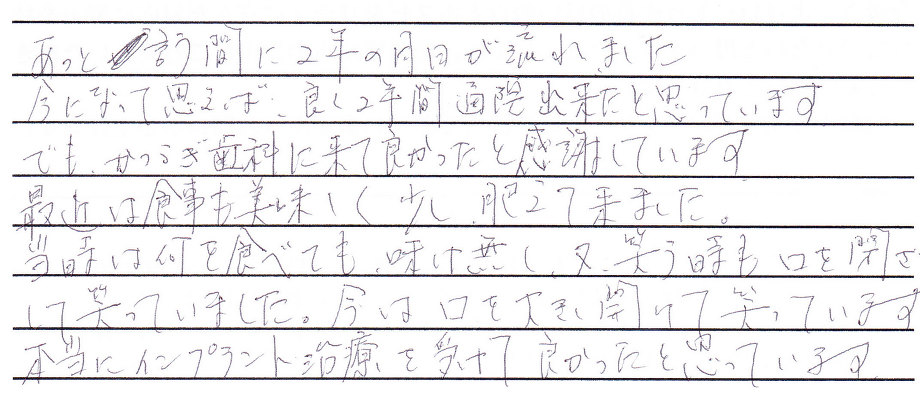 あっと言う間に2年の月日が流れました
今になって思えば、良く2年間通院出来たと思っています
でも、かつらぎ歯科に来て良かったと感謝しています
最近は食事も美味しく少し肥えて来ました。
当時は何を食べても、味け無し、又、笑う時も口を閉ざ
して笑っていました。今は口を大きく開けて笑っています
本当にインプラント治療を受けて良かったと思っています